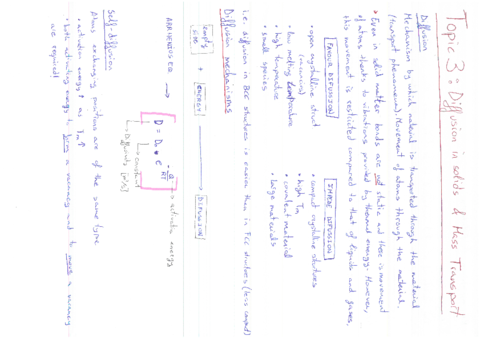 Topic 3: Diffusion in solids & Mass Transport
Diffusion
Mechanism by which material is transported through the material
(transport phenomenon). Movement of atoms through the material.
> Even in solid matter bonds are not static and there is movement
of atoms thanks to vibrations provided by thermal energy. However,
this movement is restricted compared to that of liquids and gases.
FAVOUR DIFFUSION
• open crystalline struct
• low melting temperature
• high temperature
• small species
IMPEDE DIFFUSION
• compact crystalline structures
• high Tm
• covalent material
• large materials
i.e. diffusion in BCC structures is easier than in FCC structures (less compact)
Diffusion mechanisms
empty + ENERGY → DIFFUSION
ARRHENIUS EQ → D = D₀ · e^(-Q/RT) → activation energy
→ constant
→ Diffusivity [m²/s]
Self-diffusion
Atoms exchanging positions are of the same type
• activation energy ↑ as Tm ↑
• both activation energy to form a vacancy and to move a vacancy
are required.